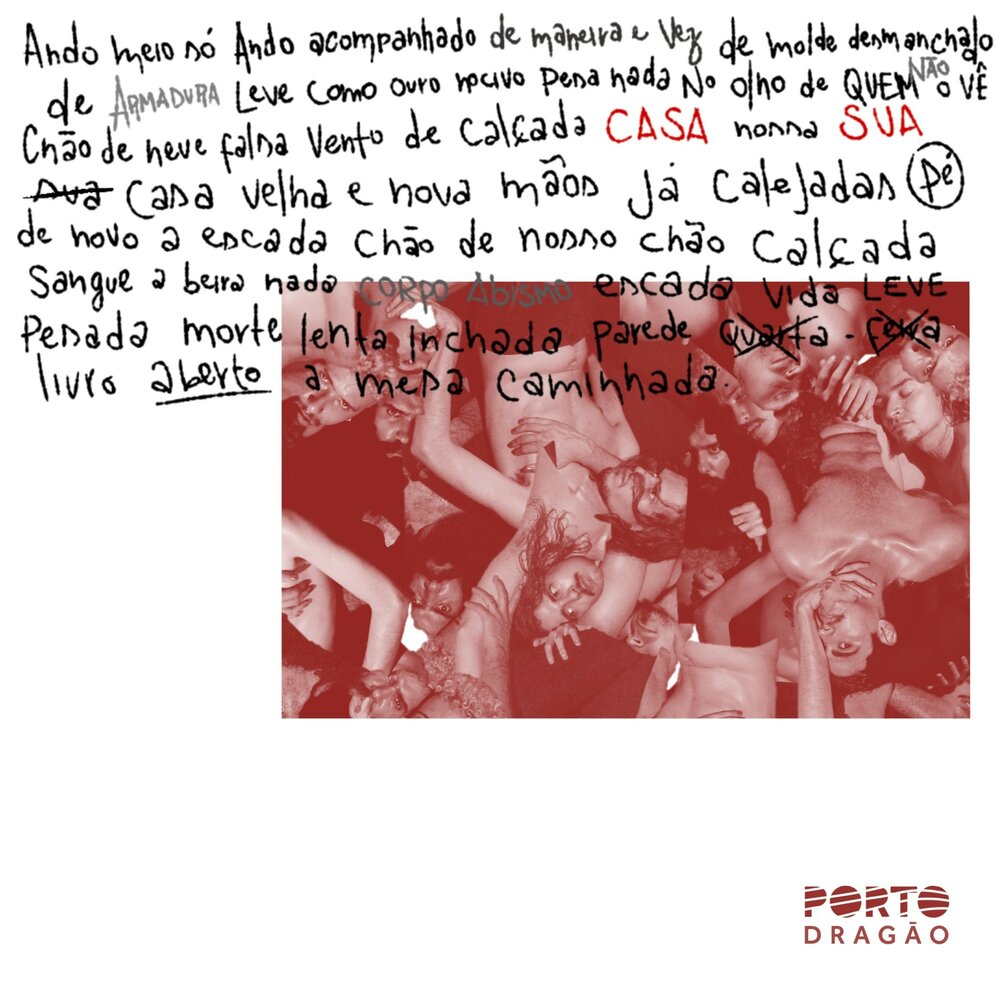 Ando meio só Ando acompanhado de maneira e vez de molde desmanchado
de ARMADURA Leve como ouro nocivo pesa nada No olho de QUEM NÃO o VÊ
Chão de neve falsa vento de calçada CASA nossa SUA
sua casa velha e nova mãos já calejadas pé
de novo a escada chão de nosso chão calçada
sangue a beira nada CORPO ABISMO escada vida LEVE
Pesada morte lenta inchada parede quarta-feira
livro aberto a mesa caminhada.
PORTO
DRAGÃO